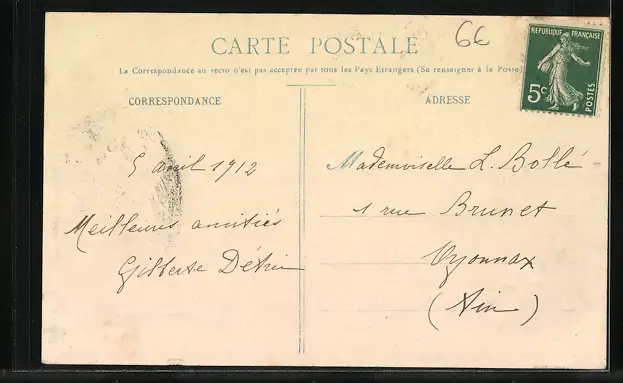 6€
CARTE POSTALE
REPUBLIQUE FRANÇAISE
5c
POSTES
La Correspondance au recto n'est pas acceptée par tous les Pays Etrangers (Se renseigner à la Poste)
CORRESPONDANCE
5 avril 1912
Meilleures amitiés
Gilberte
ADRESSE
Mademoiselle L. Bollé
1 rue Brunet
Oyonnax
(Ain)